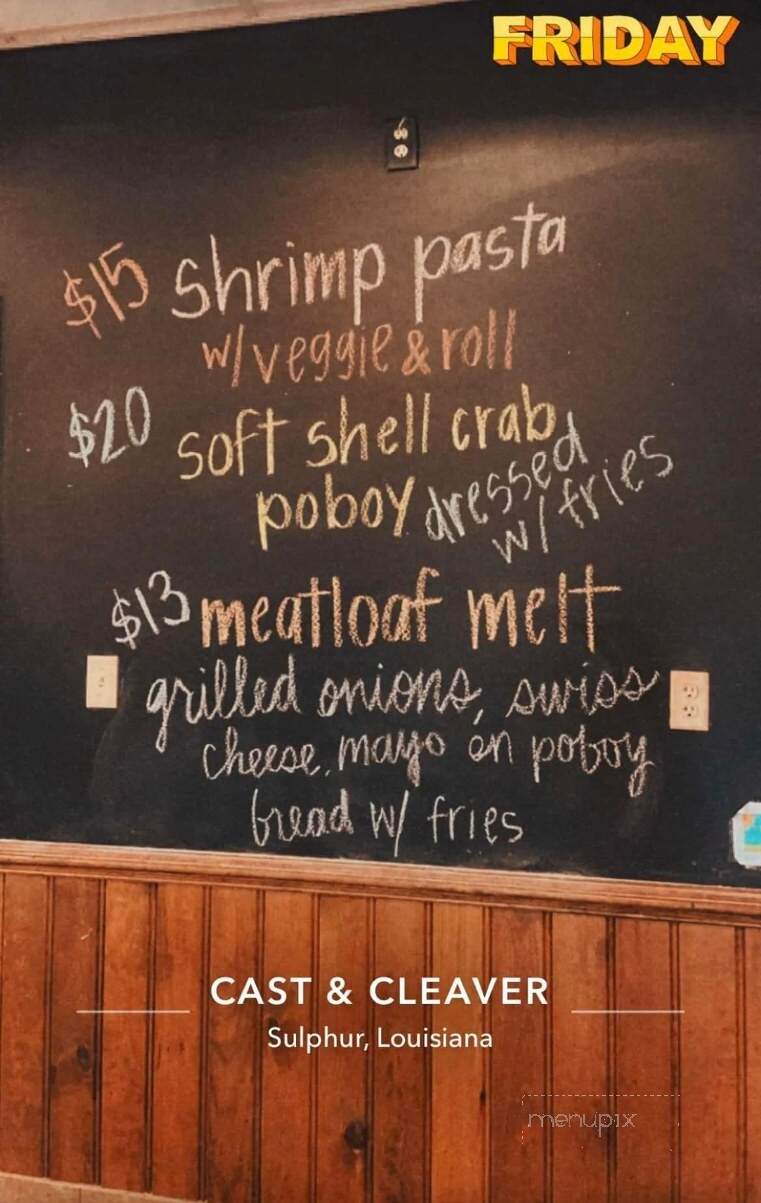 FRIDAY
$15 shrimp pasta
w/veggie & roll
$20 soft shell crab
poboy dressed
w/ fries
$13 meatloaf melt
grilled onions, swiss
cheese, mayo on poboy
bread w/ fries
CAST & CLEAVER
Sulphur, Louisiana
menupix